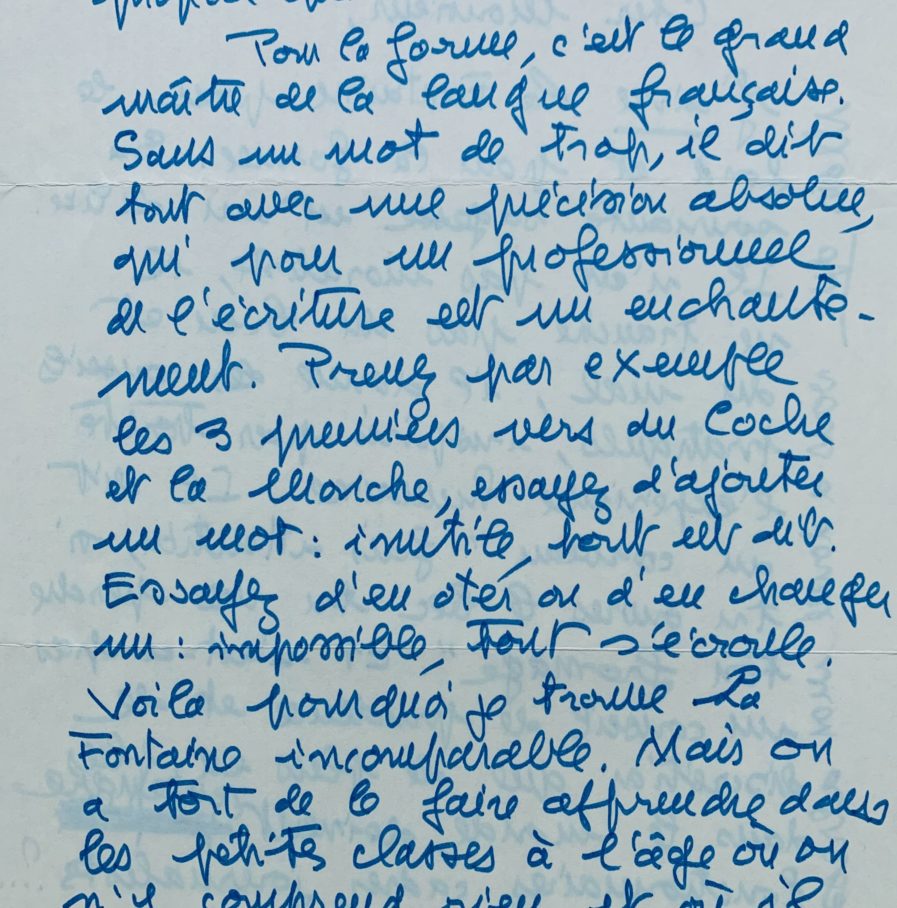 Pour la forme, c'est le grand
maître de la langue française.
Sans un mot de trop, il dit
tout avec une précision absolue,
qui pour un professionnel
de l'écriture est un enchante-
ment. Prenez par exemple
les 3 premiers vers du Coche
et la Mouche, essayez d'ajouter
un mot : inutile, tout est dit.
Essayez d'en oter ou d'en changer
un : impossible, tout s'écroule.
Voilà pourquoi je trouve La
Fontaine incomparable. Mais on
a tort de le faire apprendre dans
les petites classes à l'âge où on
n'y comprend rien et où il